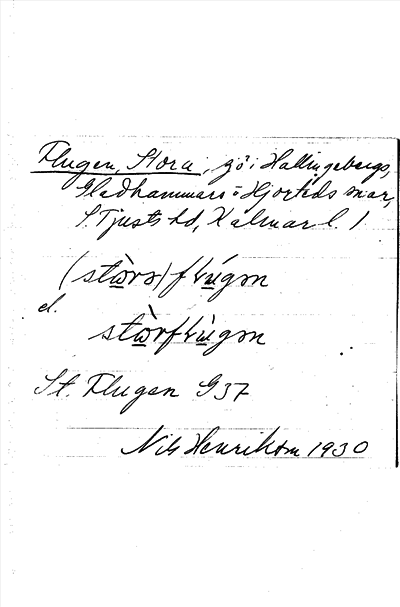 Flugen, Stora, sjö i Hallingebergs,
Gladhammars o Hjorteds snar,
S. Tjusts hd, Kalmar l. 1
(stωrα) fɫúgən
el.
stὼrfɫùgən
St. Flugen G37
Nils Henrikson 1930